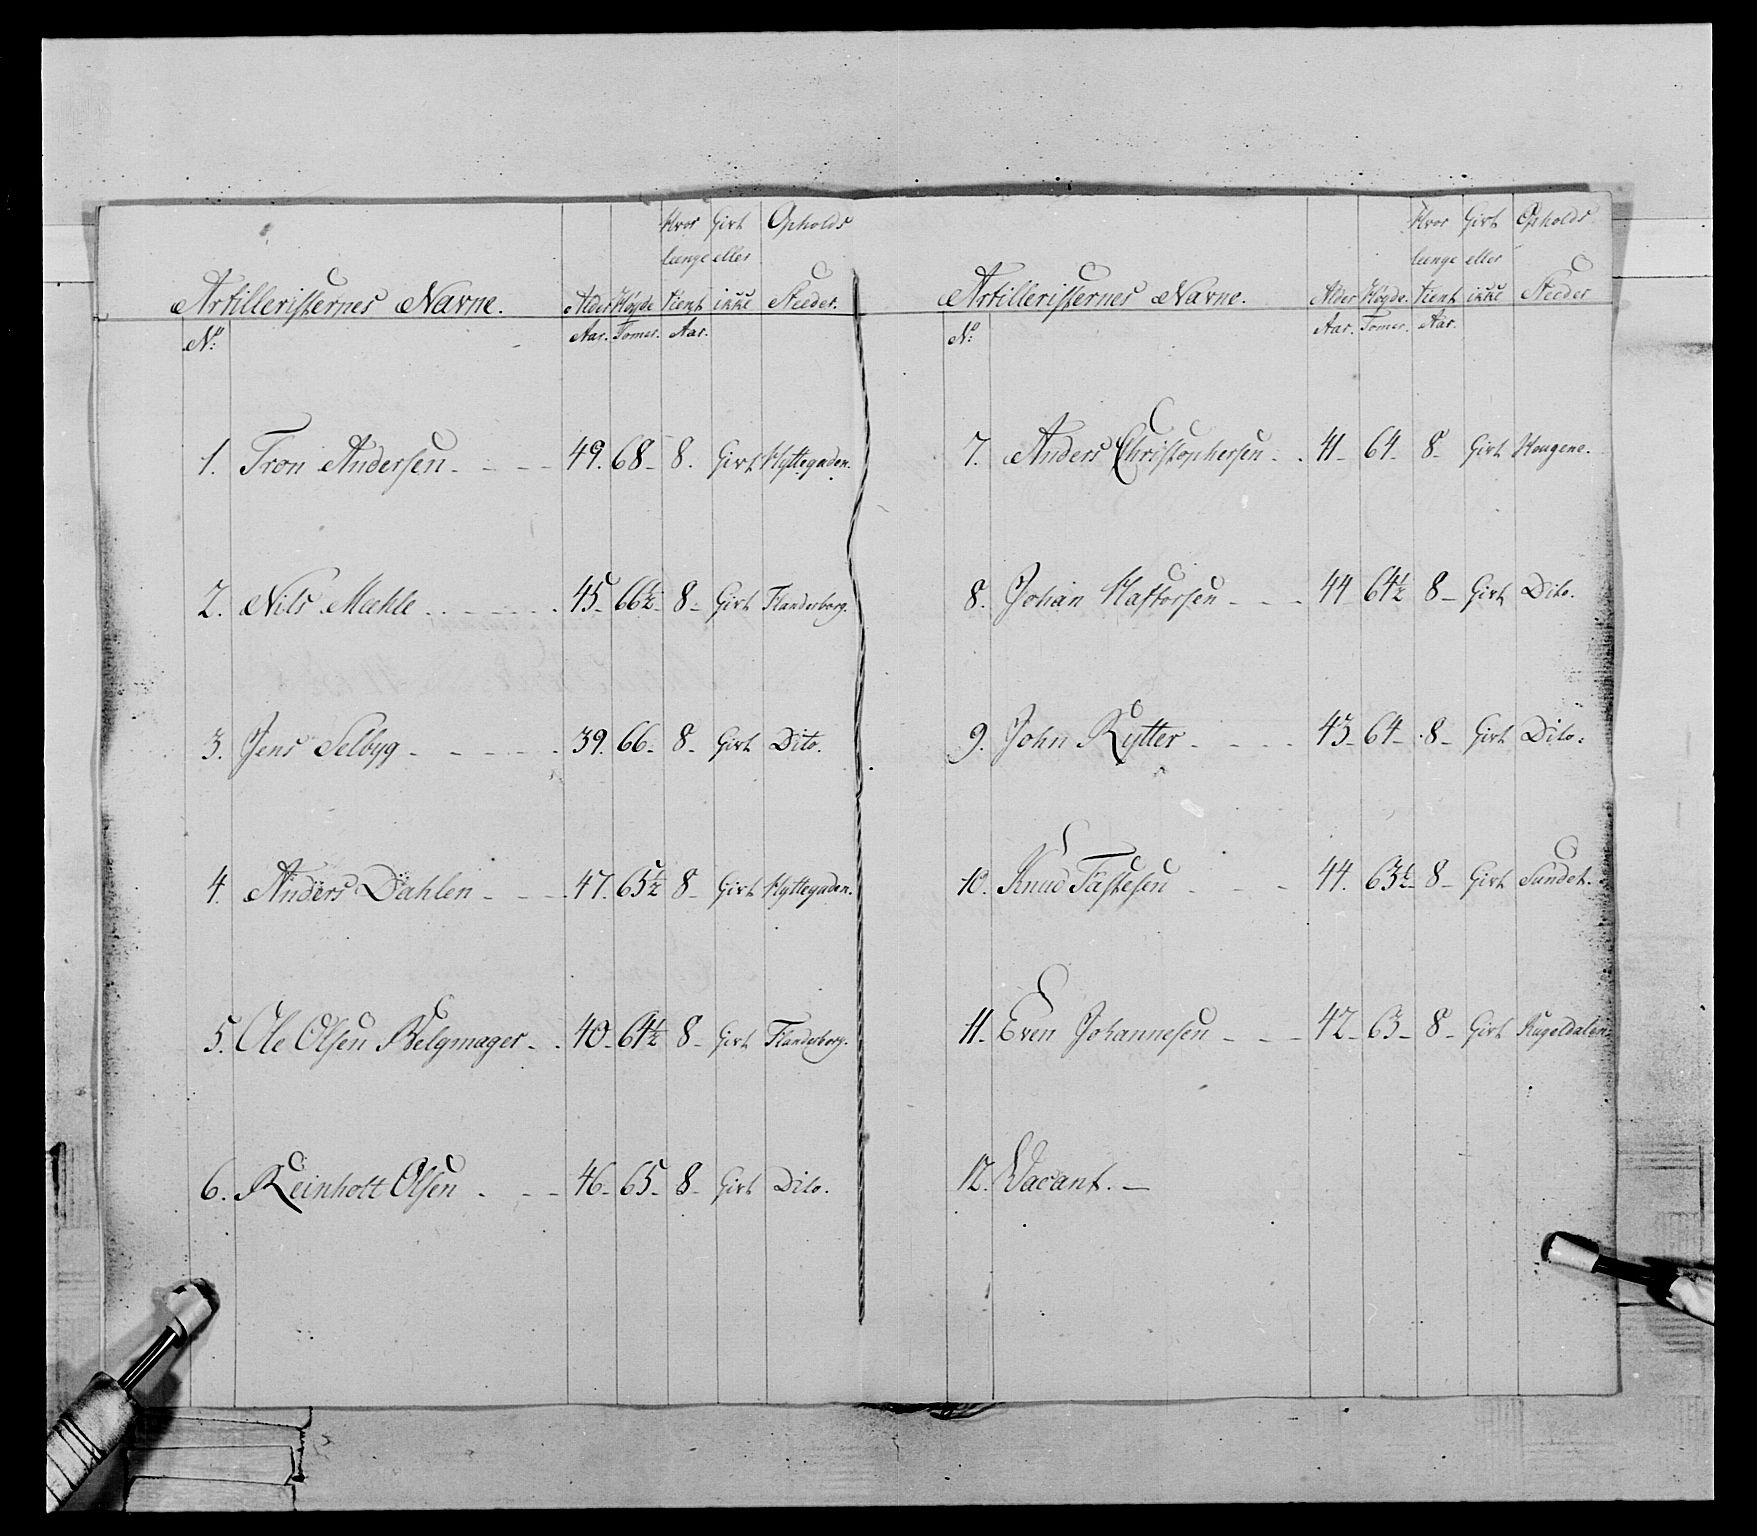 Hvor Gift Opholds
længe eller
Artilleristernes Navne. Alder Høyde tient ikke Steder.
No: Aar. Tomer. Aar.
1. Tron Andersen 49. 68 8. Gift Hyttegaden.
2. Nils Mæhle 45 66½ 8 Gift Flanderborg.
3. Jens Selbyg 39. 66 8 Gift Dito.
4. Anders Dahlen 47. 65½ 8 Gift Hyttegaden.
5. Ole Olsen Belgmager 40 64½ 8 Gift Flanderborg.
6. Reinholt Olsen 46 65 8 Gift Dito.
Hvor Gift Opholds
længe eller
Artilleristernes Navne. Alder Høyde. tient ikke Steder
No: Aar. Tomer. Aar.
7. Anders Christophersen 41 64 8 Gift Hougene.
8. Johan Haftorsen 44 64½ 8 Gift Dito.
9. John Rytter 43 64 8 Gift Dito.
10. Knud Tastesen 44. 63½ 8 Gift Sundet.
11. Even Johannesen 42 63 8 Gift
12. Vacant.